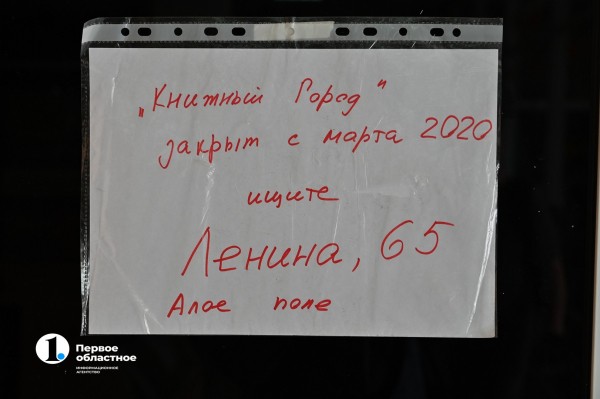 „Книжный Город"
закрыт с марта 2020
ищите
Ленина, 65
Алое поле
1.
Первое
областное
ИНФОРМАЦИОННОЕ
АГЕНТСТВО